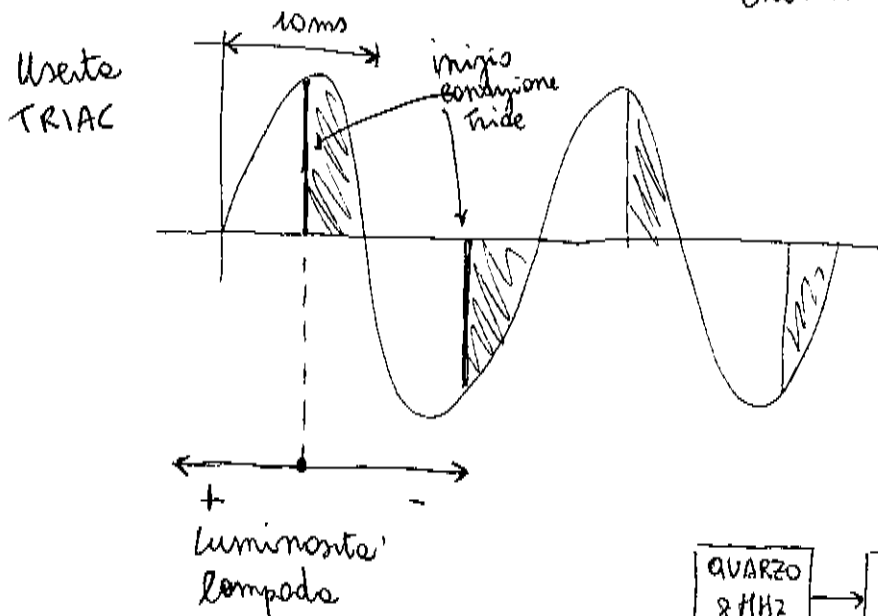 10ms
Uscita
TRIAC
inizio
conduzione
+
-
luminosita'
lampada
QUARZO
8 MHz